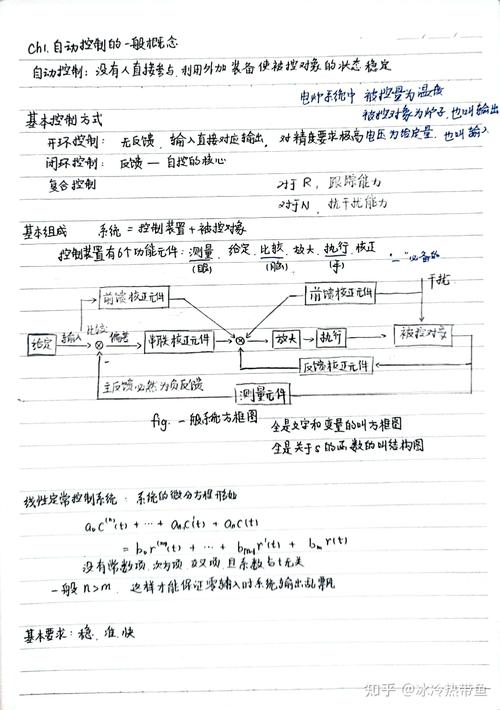 Ch1. 自动控制的一般概念
自动控制：没有人直接参与，利用外加装备使被控对象的状态稳定
电炉系统中 被控量为温度
被控对象为炉子，也叫输出
电压为给定量，也叫输入
基本控制方式
开环控制：无反馈，输入直接对应输出，对精度要求极高
闭环控制：反馈 — 自控的核心
复合控制
对于R，跟踪能力
对于N，抗干扰能力
基本组成 系统 = 控制装置 + 被控对象
控制装置有6个功能元件：测量，给定，比较，放大，执行，校正
(眼) (脑) (手)
"—"必备的
干扰
前馈校正元件 前馈校正元件
给定 输入 比较 偏差 串联校正元件 放大 执行 被控对象
反馈校正元件
主反馈必然为负反馈 测量元件
fig. 一般系统方框图
全是文字和变量的叫方框图
全是关于s的函数的叫结构图
线性定常控制系统：系统的微分方程形如
a₀c⁽ⁿ⁾(t) + ··· + aₙc'(t) + aₙc(t)
= b₀r⁽ᵐ⁾(t) + ··· + bₘ₋₁r'(t) + bₘr(t)
没有常数项，次方项，交叉项，且系数与t无关
一般 n>m，这样才能保证零输入时系统输出
基本要求：稳，准，快
知乎 @冰冷热带鱼